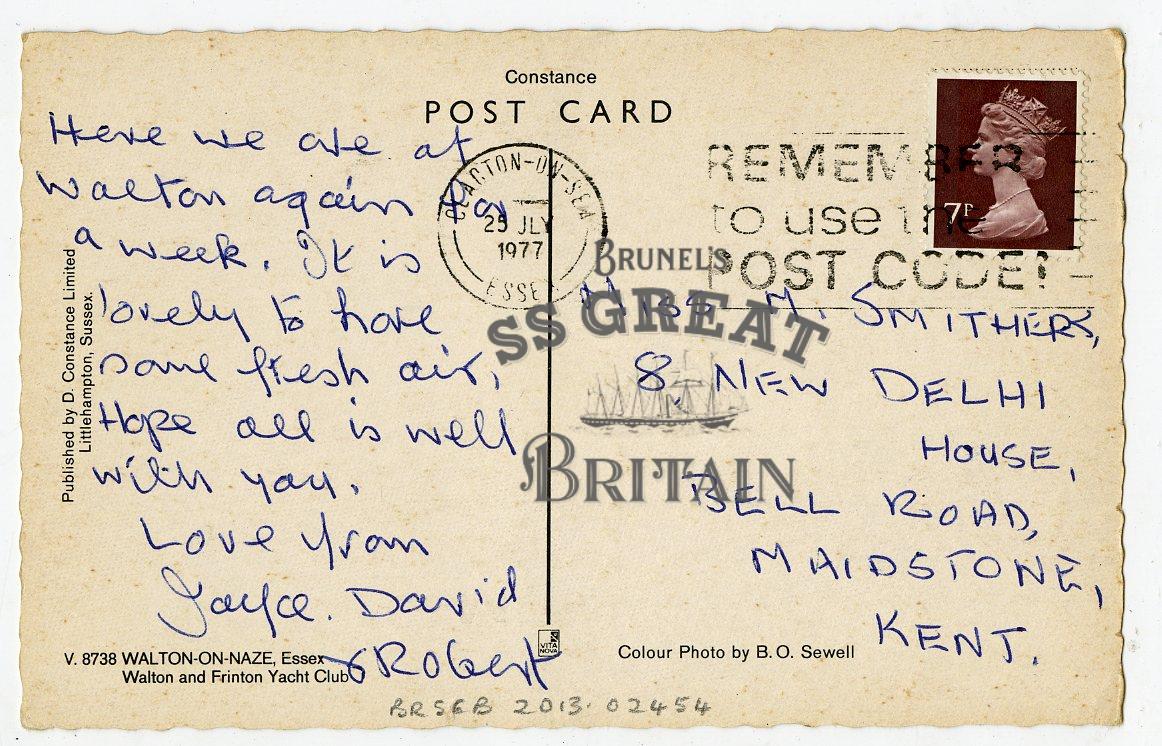 Constance
POST CARD
Here we are at
Walton again for
a week. It is
lovely to have
some fresh air,
Hope all is well
with you.
Love from
Joyce. David
& Robert
Published by D. Constance Limited
Littlehampton, Sussex.
V. 8738 WALTON-ON-NAZE, Essex
Walton and Frinton Yacht Club
CLACTON-ON-SEA
25 JLY
1977
ESSEX
REMEMBER
to use the
POST CODE!
7P
BRUNEL'S
SS GREAT
BRITAIN
Miss M. SMITHERS,
8, NEW DELHI
HOUSE,
BELL ROAD,
MAIDSTONE,
KENT.
VITA
NOVA
Colour Photo by B. O. Sewell
BRSGB 2013.02454